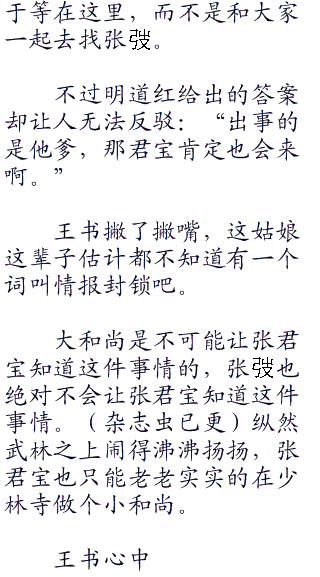 于等在这里，而不是和大家
一起去找张弢。
不过明道红给出的答案
却让人无法反驳：“出事的
是他爹，那君宝肯定也会来
啊。”
王书撇了撇嘴，这姑娘
这辈子估计都不知道有一个
词叫情报封锁吧。
大和尚是不可能让张君
宝知道这件事情的，张弢也
绝对不会让张君宝知道这件
事情。（杂志虫已更）纵然
武林之上闹得沸沸扬扬，张
君宝也只能老老实实的在少
林寺做个小和尚。
王书心中